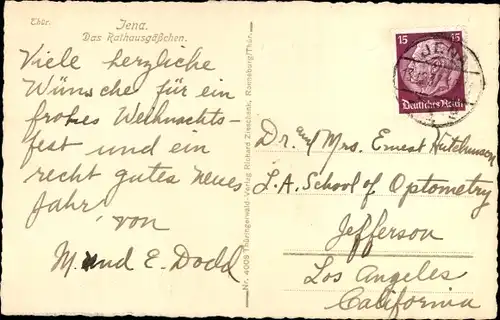 Thür.
Jena.
Das Rathausgäßchen.
Viele herzliche
Wünsche für ein
frohes Weihnachts-
fest und ein
recht gutes neues
Jahr, von
M. und E. Dodd
Nr. 4009 Thüringerwald-Verlag Richard Zieschank, Ronneburg/Thür.
15 15
JENA
Deutsches Reich
Dr. and Mrs. Ernest Hutchinson
L.A. School of Optometry
Jefferson
Los Angeles
California